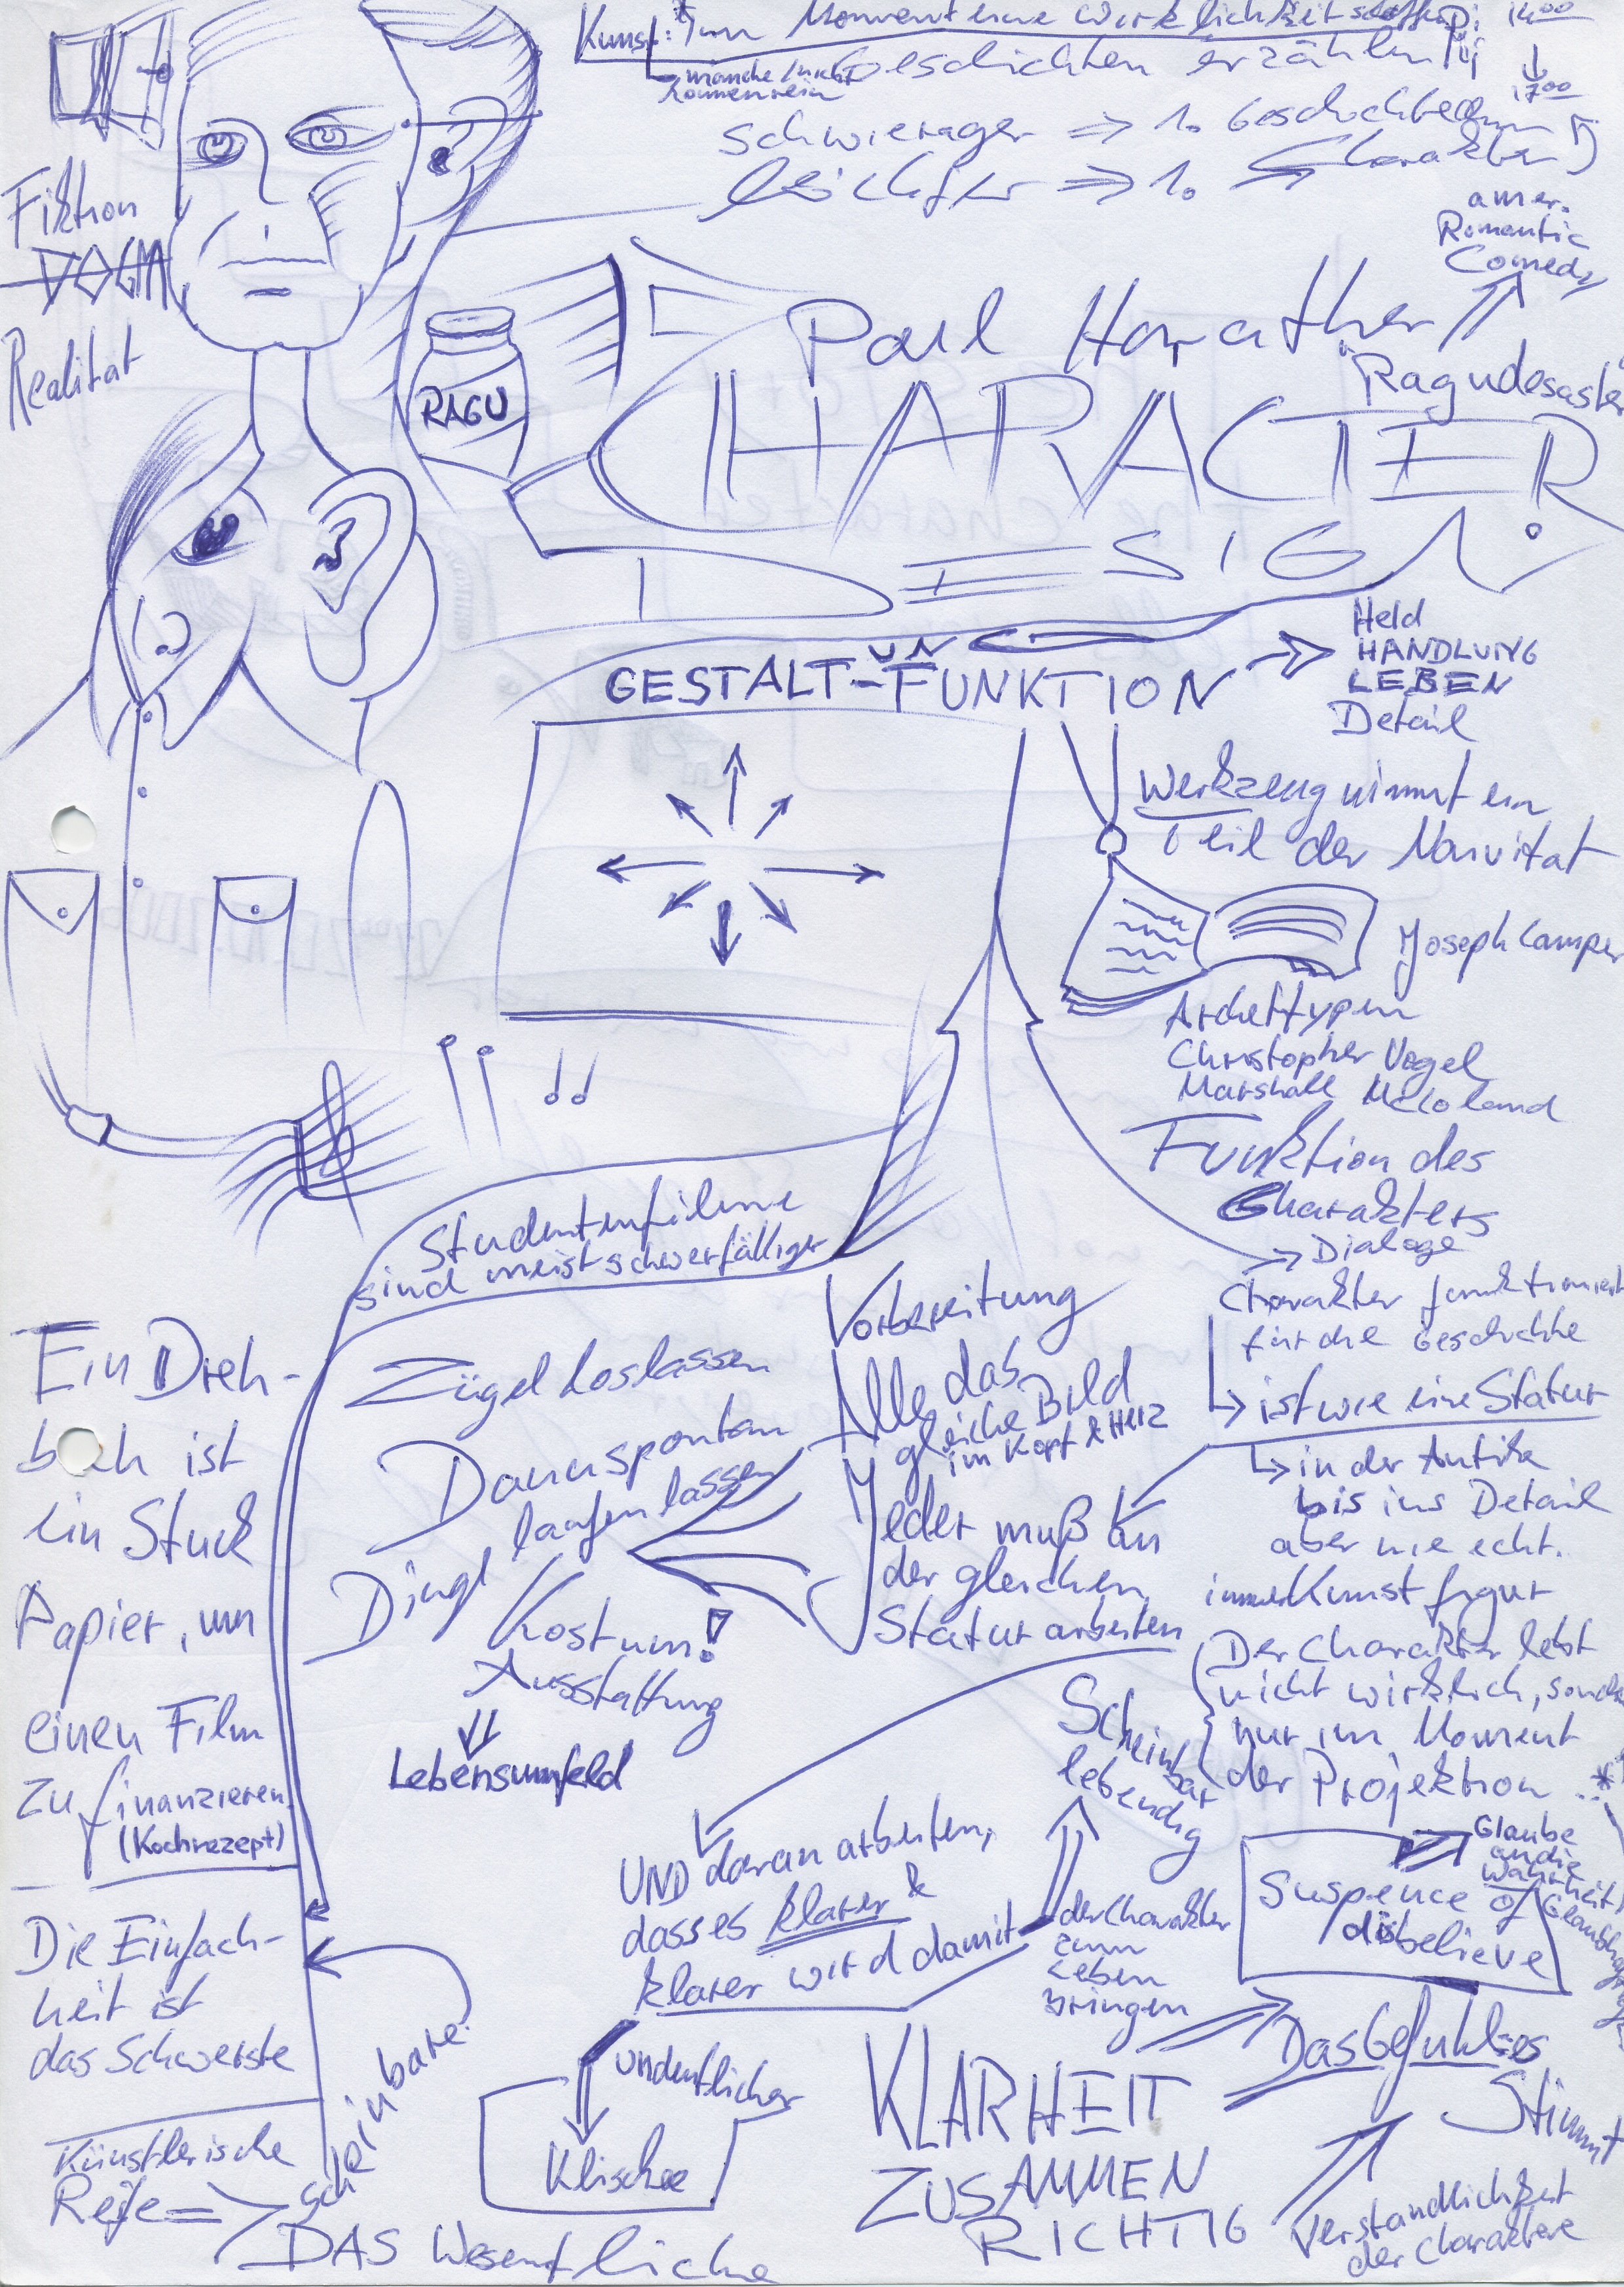 Kunst: im Moment eine Wirklichkeit schaffen
14:00
↓
17:00
manche / nicht
Geschichten erzählen
schwieriger ⇒ 1. Geschichte
leichter ⇒ 1. Charakter
Fiktion
DOGMA
Realität
amer.
Romantic
Comedy
Paul Harather
Ragudesaster
RAGU
CHARACTER
DESIGN
GESTALT-UN FUNKTION
Held
HANDLUNG
LEBEN
Detail
Werkzeug nimmt ein
Teil der Naivität
Joseph Camper
Archettypen
Christopher Vogel
Marshall
Funktion des
Charakters
Dialoge
Charakter funktioniert
für die Geschichte
ist wie eine Statur
in der Antike
bis ins Detail
aber nie echt.
immer Kunstfigur
Der Charakter lebt
nicht wirklich, sonde
nur im Moment
der Projektion *
Studentenfilme
sind meist schwerfälliger
Zügel loslassen
Dann spontan
laufen lassen
Dinge
Kostüm!
Ausstattung
Lebensumfeld
Vorbereitung
Alle das
gleiche Bild
im Kopf & Herz
Jeder muß an
der gleichen
Statur arbeiten
Scheinbar
lebendig
UND daran arbeiten,
dass es klarer &
klarer wird damit
der Charakter
zum
Leben
bringen
Glaube
an die
Wahrheit
Suspence of
disbelieve
Das Gefühl es
Stimmt
KLARHEIT
ZUSAMMEN
RICHTIG
Verständlichkeit
der Charaktere
undeutlicher
Klischee
Ein Dreh-
buch ist
ein Stück
Papier, um
einen Film
zu finanzieren
(Kochrezept)
Die Einfach-
heit ist
das Schwerste
scheinbare
Künstlerische
Reife ⇒
DAS Wesentliche